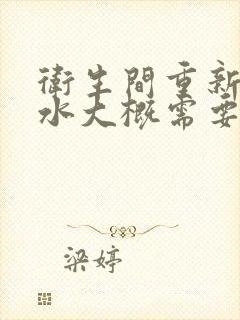 衛生間重新
水大概需要
梁婷